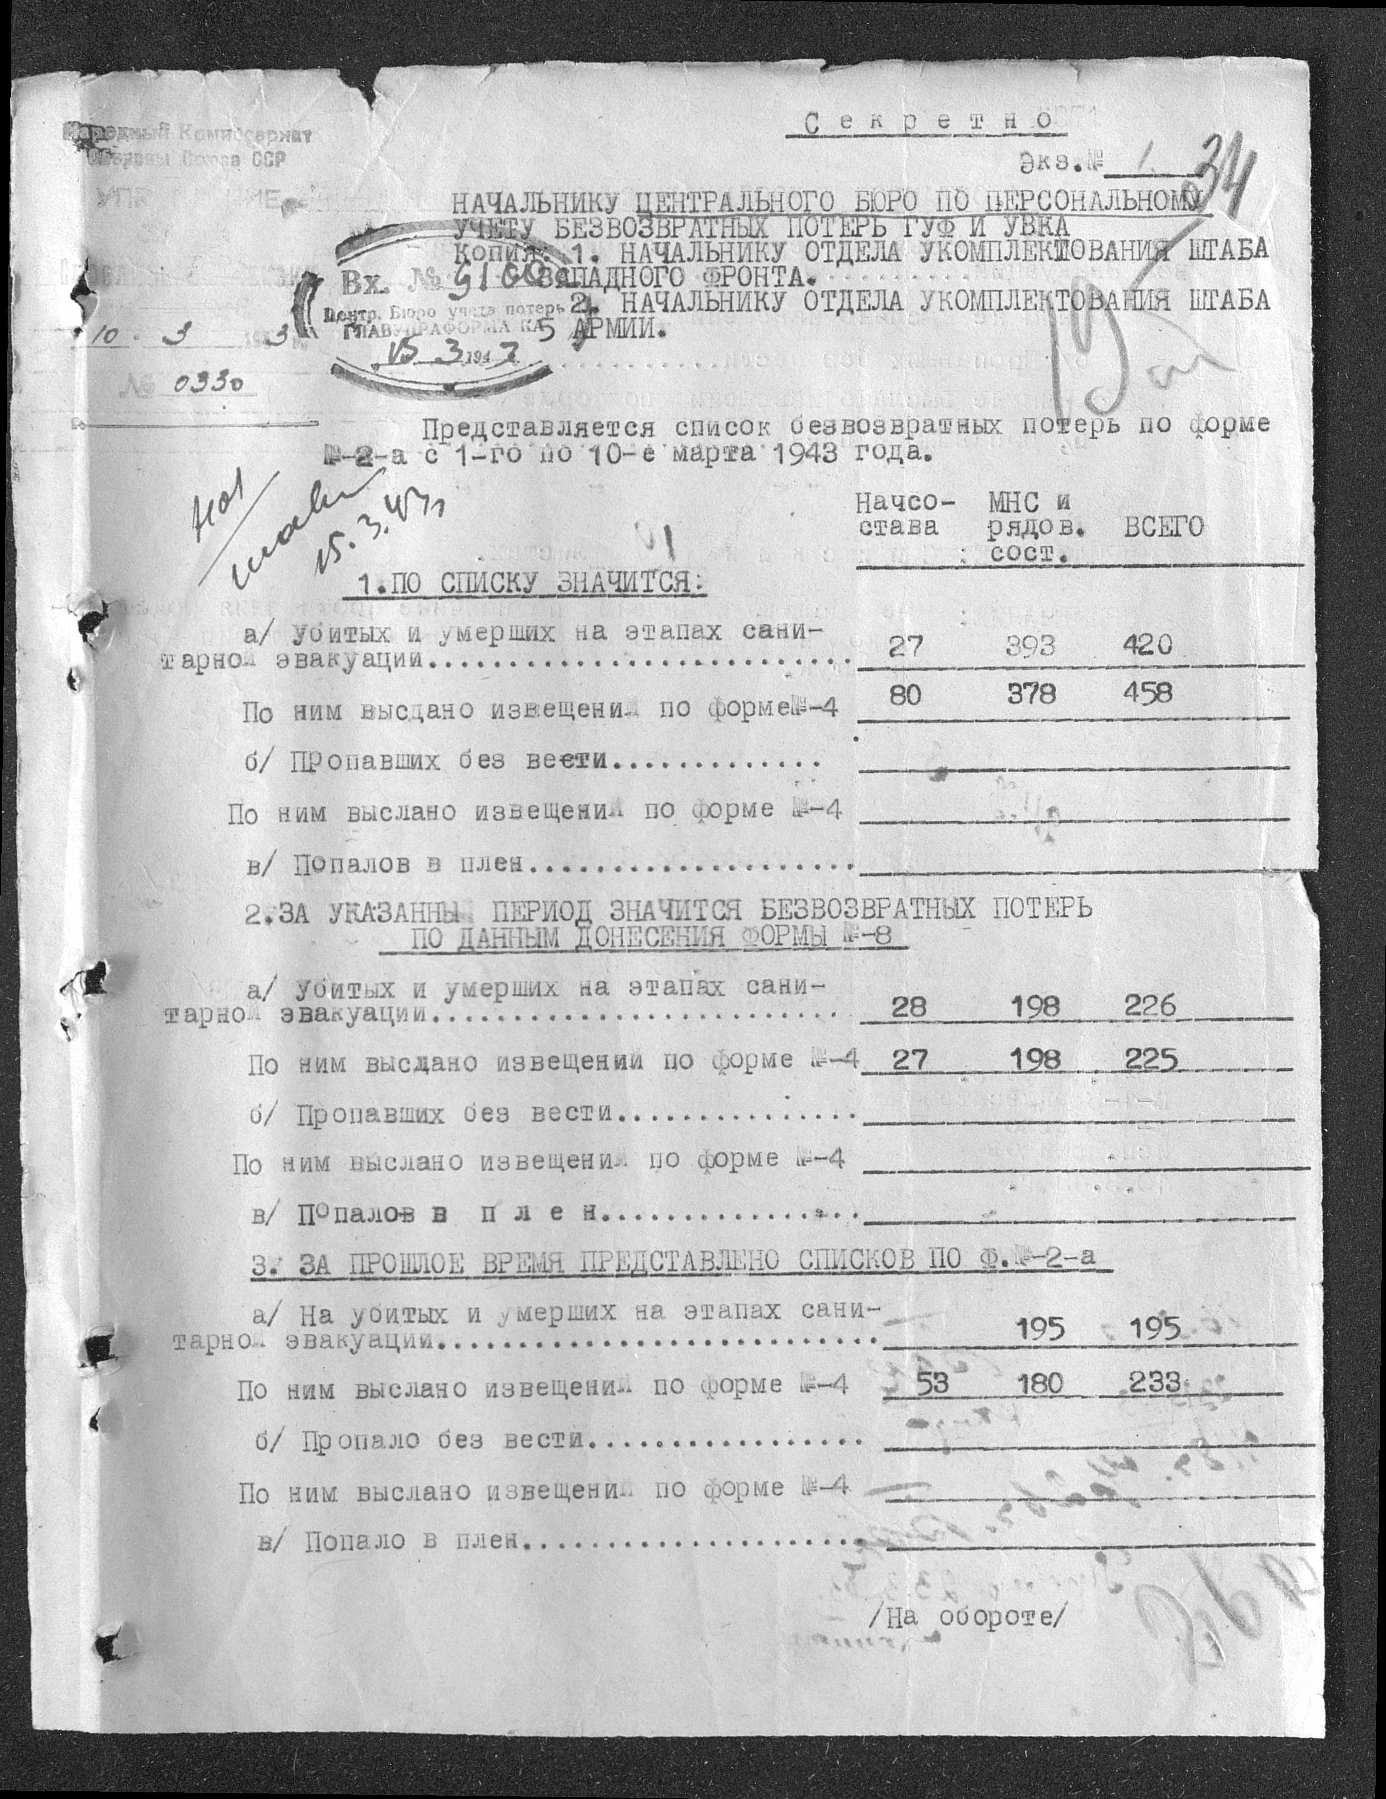 Секретно
Экз.№ 1
34
Народный Комиссариат
Обороны Союза ССР
НАЧАЛЬНИКУ ЦЕНТРАЛЬНОГО БЮРО ПО ПЕРСОНАЛЬНОМУ
УЧЕТУ БЕЗВОЗВРАТНЫХ ПОТЕРЬ ГУФ И УВКА
Копия: 1. НАЧАЛЬНИКУ ОТДЕЛА УКОМПЛЕКТОВАНИЯ ШТАБА
ЗАПАДНОГО ФРОНТА.
2. НАЧАЛЬНИКУ ОТДЕЛА УКОМПЛЕКТОВАНИЯ ШТАБА
5 АРМИИ.
Вх. №
Центр. Бюро учета потерь
ГЛАВУПРАФОРМА КА
15 3 1943
10. 3 1943
№ 0330
Представляется список безвозвратных потерь по форме
№-2-а с 1-го по 10-е марта 1943 года.
15.3.43г
Начсо- МНС и
става рядов. ВСЕГО
сост.
1.ПО СПИСКУ ЗНАЧИТСЯ:
а/ Убитых и умерших на этапах сани-
тарной эвакуации........................... 27 393 420
По ним высдано извещений по форме№-4 80 378 458
б/ Пропавших без вести.............
По ним выслано извещений по форме №-4
в/ Попалов в плен....................
2.ЗА УКАЗАННЫЙ ПЕРИОД ЗНАЧИТСЯ БЕЗВОЗВРАТНЫХ ПОТЕРЬ
ПО ДАННЫМ ДОНЕСЕНИЯ ФОРМЫ №-8
а/ Убитых и умерших на этапах сани-
тарной эвакуации.......................... 28 198 226
По ним выслано извещений по форме №-4 27 198 225
б/ Пропавших без вести...............
По ним выслано извещений по форме №-4
в/ Попалов в п л е н................
3. ЗА ПРОШЛОЕ ВРЕМЯ ПРЕДСТАВЛЕНО СПИСКОВ ПО Ф.№-2-а
а/ На убитых и умерших на этапах сани-
тарной эвакуации........................... 195 195
По ним выслано извещений по форме №-4 53 180 233
б/ Пропало без вести.................
По ним выслано извещений по форме №-4
в/ Попало в плен.....................
/На обороте/